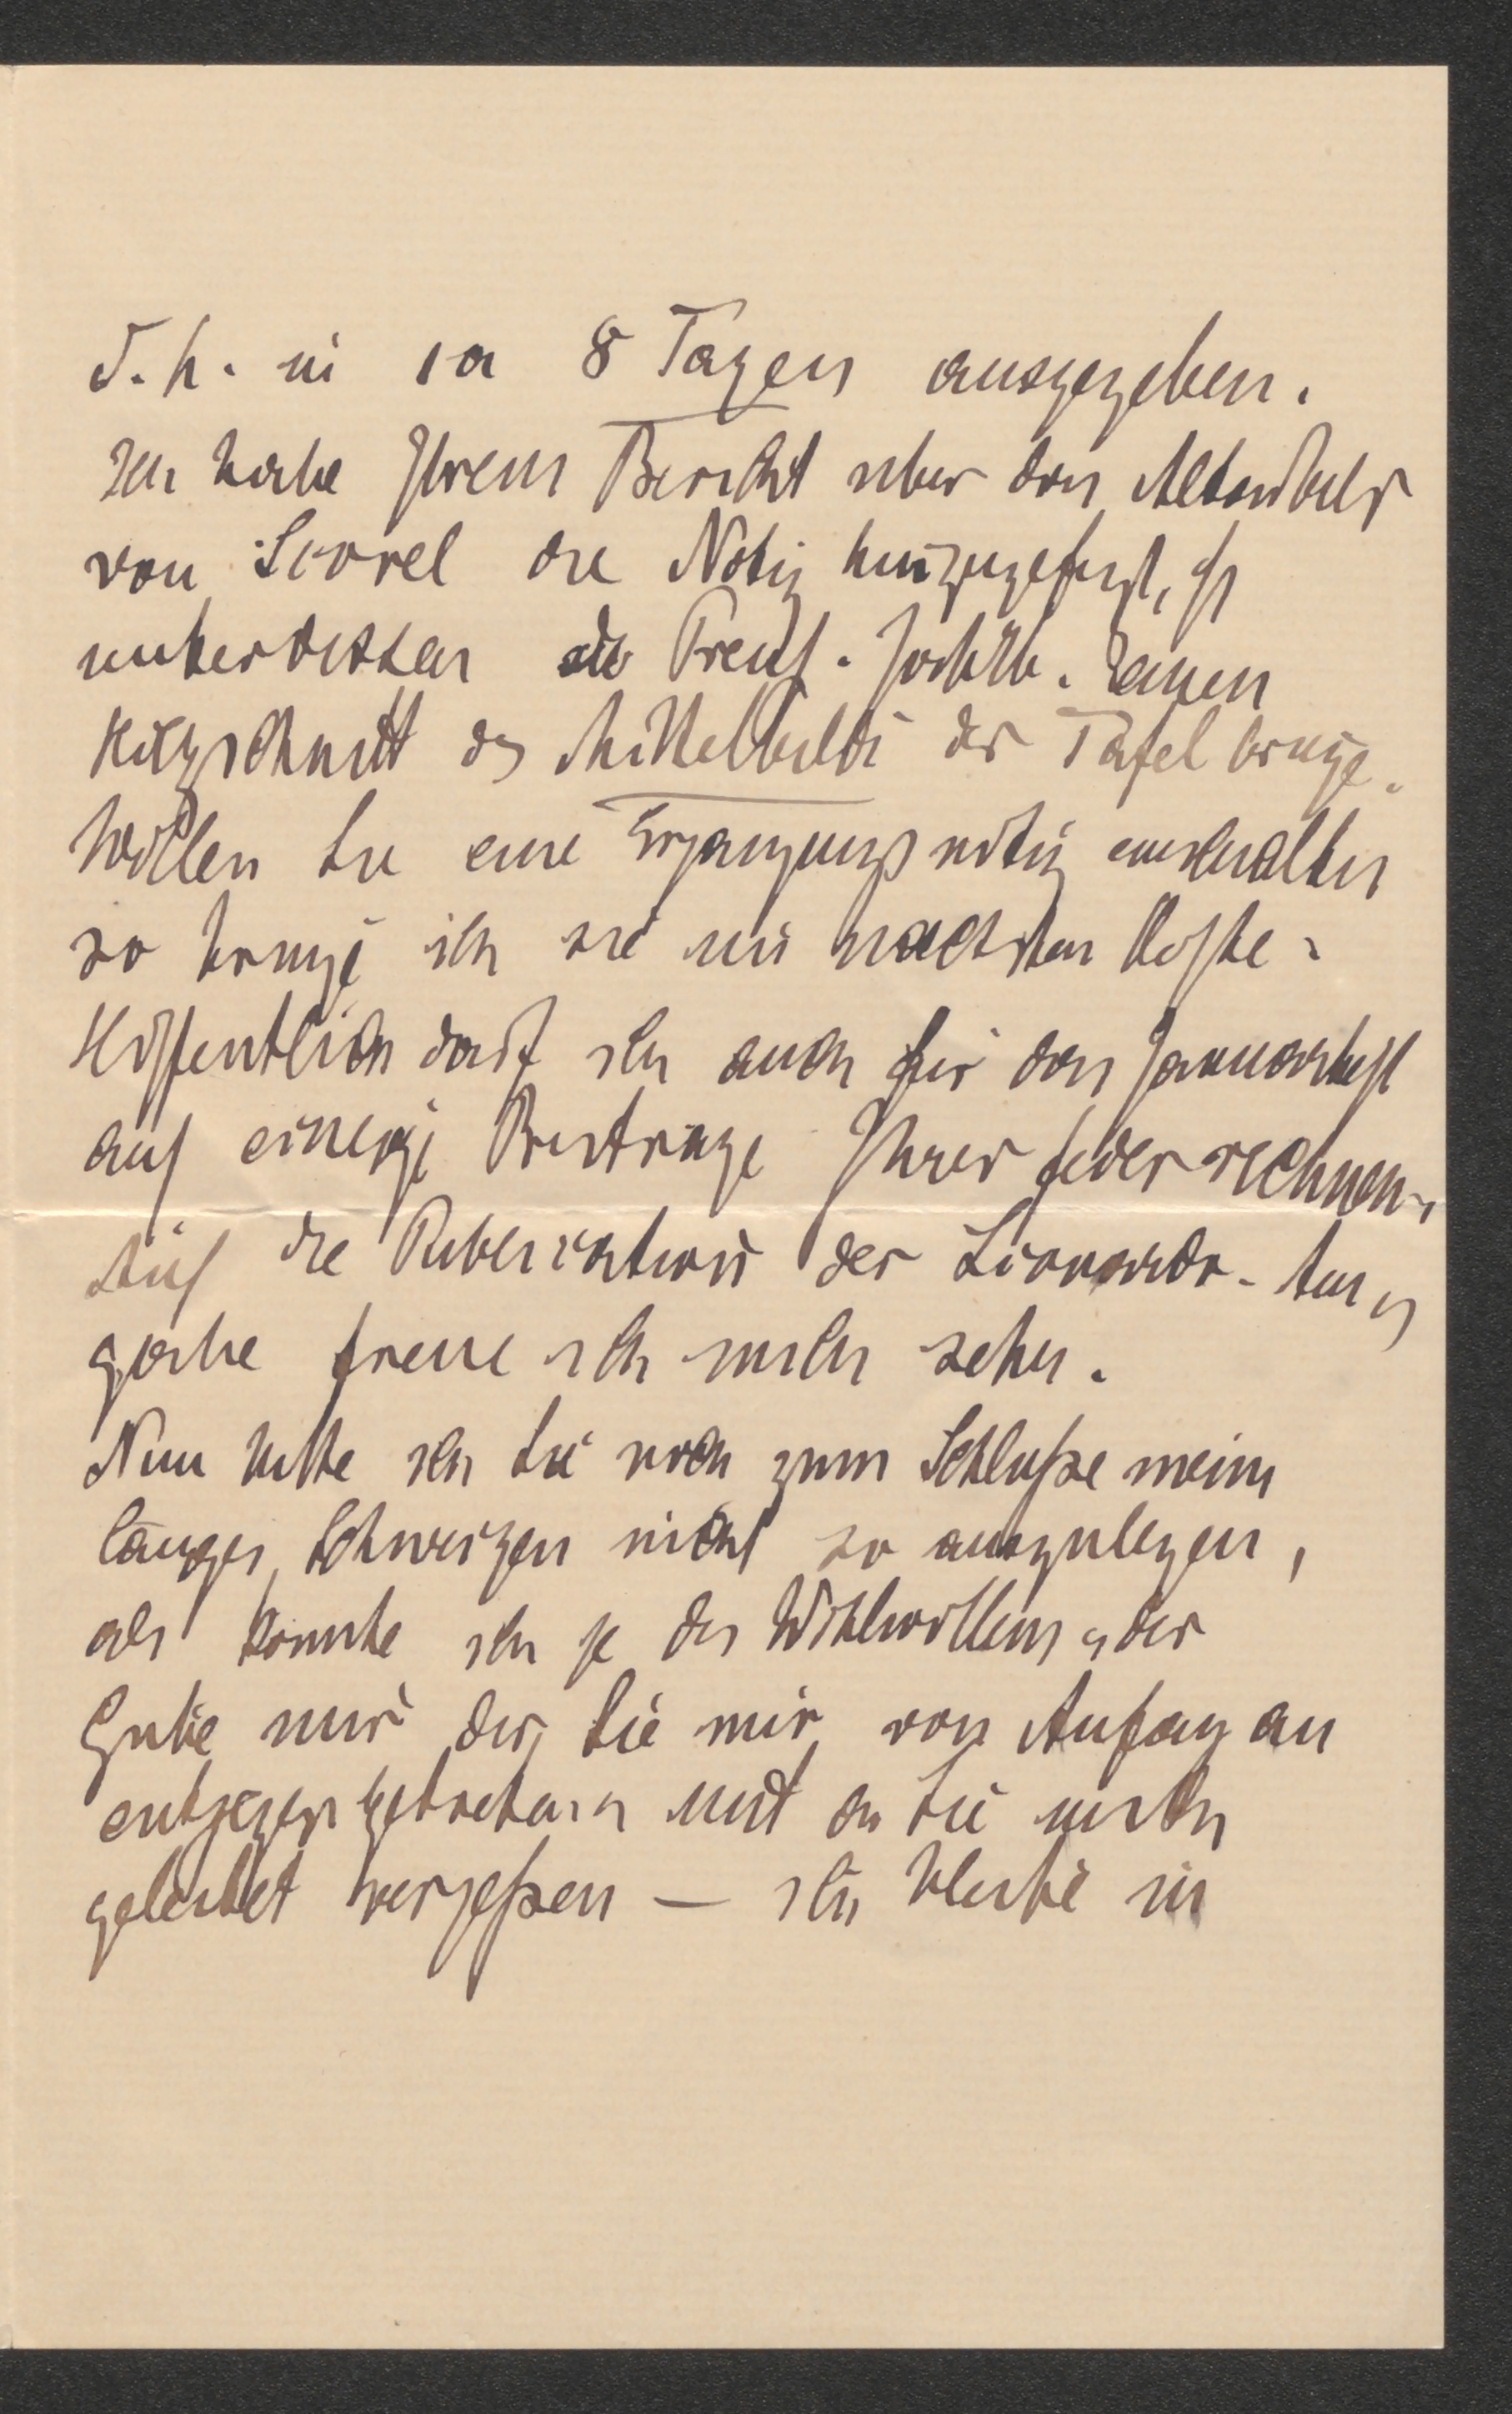 d. h. in ca 8 Tagen ausgegeben.
Ich habe Ihrem Bericht über das Altarbild
von Scorel die Notiz hinzugefügt, daß
unterdessen die Preuß. Jahrb. einen
Holzschnitt des Mittelbilds der Tafel bringe.
Wollen Sie eine Ergänzungsnotiz einschalten
so bringe ich sie im nächsten Hefte.
Hoffentlich darf ich auch für das Januarheft
auf einige Beiträge Ihrer Feder rechnen.
Auf die Publication der Lionardo-Aus
gabe freue ich mich sehr.
Nun bitte ich Sie noch zum Schluße mein
langes Schweigen nicht so auszulegen,
als könnte ich je des Wohlwollens u der
Güte mit der Sie mir von Anfang an
entgegengetreten und die Sie mich
geleitet vergeßen — ich bleibe in